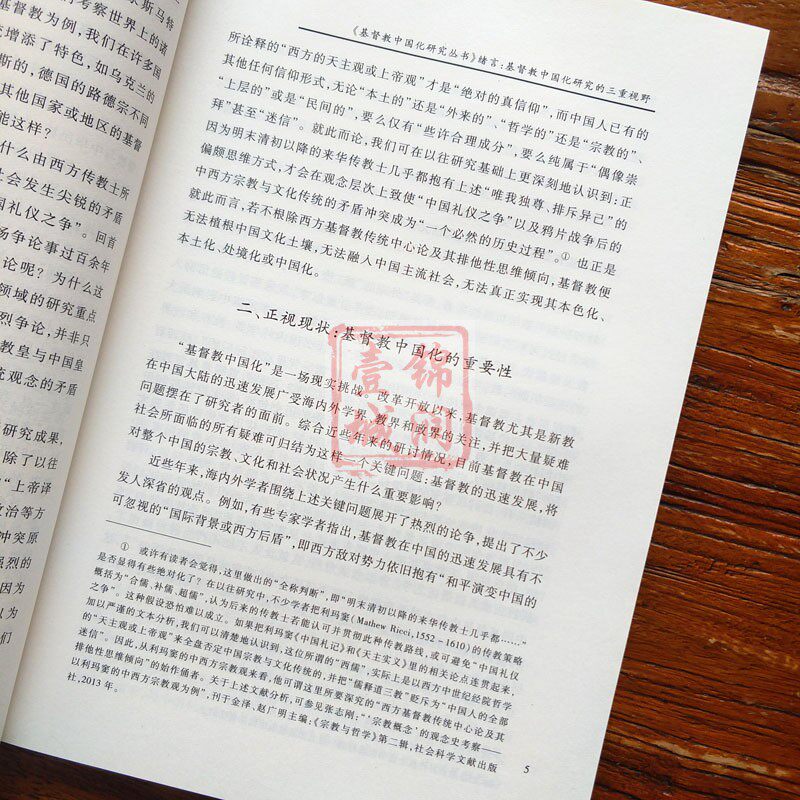 斯马特
考察世界上的诸
基督教为例，我们在许多国
增添了特色，如乌克兰的
斯的，德国的路德宗不同
其他国家或地区的基督
能这样？
什么由西方传教士所
社会发生尖锐的矛盾
国礼仪之争”。回首
场争论事过百余年
论呢？为什么这
领域的研究重点
烈争论，并非只
教皇与中国皇
统观念的矛盾
研究成果，
除了以往
“上帝译
政治等方
冲突原
强烈的
因为
以为
们
《基督教中国化研究丛书》绪言：基督教中国化研究的三重视野
所诠释的“西方的天主观或上帝观”才是“绝对的真信仰”，而中国人已有的
其他任何信仰形式，无论“本土的”还是“外来的”、“哲学的”还是“宗教的”、
“上层的”或是“民间的”，要么仅有“些许合理成分”，要么纯属于“偶像崇
拜”甚至“迷信”。就此而论，我们可在以往研究基础上更深刻地认识到：正
因为明末清初以降的来华传教士几乎都抱有上述“唯我独尊、排斥异己”的
偏颇思维方式，才会在观念层次上致使“中国礼仪之争”以及鸦片战争后的
中西方宗教与文化传统的矛盾冲突成为“一个必然的历史过程”。① 也正是
就此而言，若不根除西方基督教传统中心论及其排他性思维倾向，基督教便
无法植根中国文化土壤，无法融入中国主流社会，无法真正实现其本色化、
本土化、处境化或中国化。
二、正视现状：基督教中国化的重要性
“基督教中国化”是一场现实挑战。改革开放以来，基督教尤其是新教
在中国大陆的迅速发展广受海内外学界、教界和政界的关注，并把大量疑难
问题摆在了研究者的面前。综合近些年来的研讨情况，目前基督教在中国
社会所面临的所有疑难可归结为这样一个关键问题：基督教的迅速发展，将
对整个中国的宗教、文化和社会状况产生什么重要影响？
近些年来，海内外学者围绕上述关键问题展开了热烈的论争，提出了不少
发人深省的观点。例如，有些专家学者指出，基督教在中国的迅速发展具有不
可忽视的“国际背景或西方后盾”，即西方敌对势力依旧抱有“和平演变中国的
① 或许有读者会觉得，这里做出的“全称判断”，即“明末清初以降的来华传教士几乎都……”
是否显得有些绝对化了？在以往研究中，不少学者把利玛窦（Mathew Ricci，1552－1610）的传教策略
概括为“合儒、补儒、超儒”，认为后来的传教士若能认可并贯彻此种传教路线，或可避免“中国礼仪
之争”。这种假设恐怕难以成立。如果把利玛窦《中国札记》和《天主实义》里的相关论点连贯起来，
加以严谨的文本分析，我们可以清楚地认识到，这位所谓的“西儒”，实际上是以西方中世纪经院哲学
的“天主观或上帝观”来全盘否定中国宗教与文化传统的，并把“儒释道三教”贬斥为“中国人的全部
迷信”。因此，从利玛窦的中西方宗教观来看，他可谓这里所要深究的“西方基督教传统中心论及其
排他性思维倾向”的始作俑者。关于上述文献分析，可参见张志刚：“‘宗教概念’的观念史考察——
以利玛窦的中西方宗教观为例”，刊于金泽、赵广明主编：《宗教与哲学》第二辑，社会科学文献出版
社，2013 年。
5